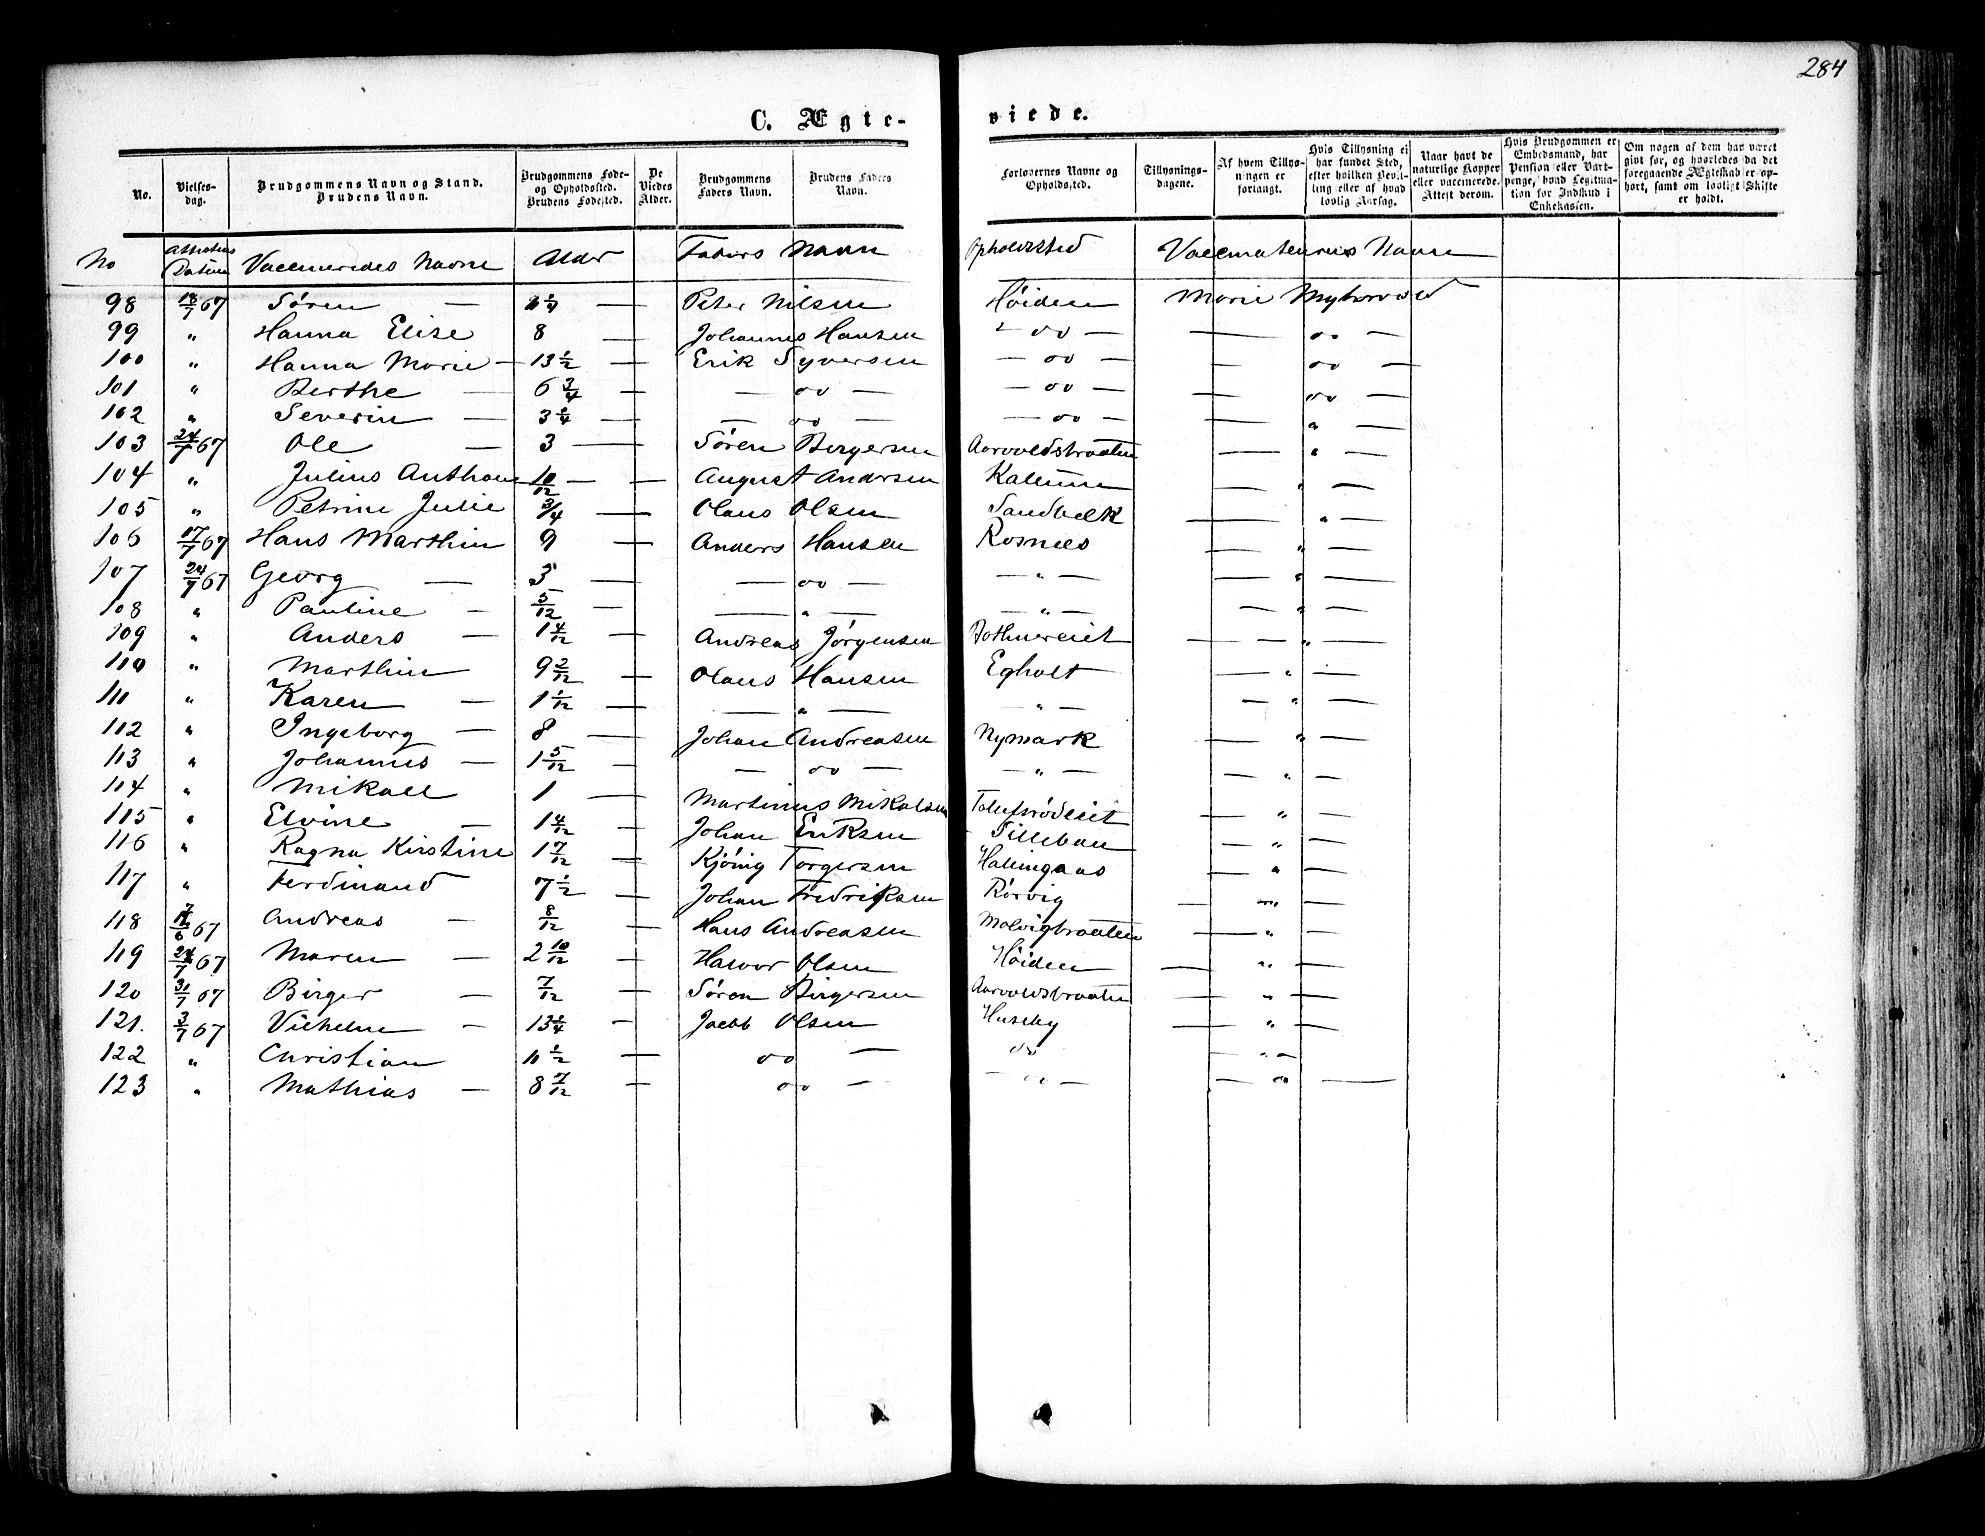 284
C. Ægte-
viede.
No.
Vielses-
dag.
Brudgommens Navn og Stand.
Brudens Navn.
Brudgommens Føde-
og Opholdssted.
Brudens Fødested.
De
Viedes
Alder.
Brudgommens
Faders Navn.
Brudens Faders
Navn.
Forlovernes Navne og
Opholdssted.
Tillysnings-
dagene.
Af hvem Tillys-
ningen er
forlangt.
Hvis Tillysning ei
har fundet Sted,
efter hvilken Bevil-
ling eller af hvad
lovlig Aarsag.
Naar havt de
naturlige Kopper
eller vaccinerede.
Attest derom.
Hvis Brudgommen er
Embedsmand, har
Pension eller Vart-
penge, hvad Legitima-
tion for Indskud i
Enkekassen.
Om nogen af dem har været
givt før, og hvorledes da det
foregaaende Ægteskab er op-
hørt, samt om lovligt Skifte
er holdt.
No Attestens Datum Vaccineredes Navne Alder Faders Navn Opholdssted Vaccinateurens Navn
98 18/7 67 Søren — 1/4 — Peter Nilsen Høiden Marie Myhrvold
99 " Hanna Elise 8 — Johannes Hansen — do — — do —
100 " Hanna Marie — 13 1/2 — Erik Syversen — do — — do —
101 " Berthe — 6 3/4 — — do — — do — — do —
102 " Severin — 3 1/4 — — do — — do — — " —
103 24/7 67 Ole — 3 — Søren Birgersen Aarvoldsbraaten — " —
104 " Julius Anthon 10/12 — August Andersen Kallum — " —
105 " Petrine Julie 3/4 — Olaus Olsen Sandbæk — " —
106 17/7 67 Hans Marthin 9 — Anders Hansen Rosnæs — " —
107 24/7 67 Georg — 3 — — do — — " — — " —
108 " Pauline — 5/12 — — " — — " — — " —
109 " Anders — 1 4/12 — Andreas Jørgensen — " —
110 " Marthin 9 2/12 — Olaus Hansen Egholt — " —
111 " Karen — 1 1/12 — — " — — " — — " —
112 " Ingeborg — 8 — Johan Andreasen Nymark — " —
113 " Johannes — 1 5/12 — — do — — " — — " —
114 " Mikall 1 — Martinus Mikalsen — " —
115 " Elvine — 1 4/12 — Johan Eriksen — " —
116 " Ragna Kirstine 1 7/12 — Torgersen — " —
117 " Ferdinand 7 1/2 — Johan Fredriksen Rørvig — " —
118 67 Andreas — 8/12 — Hans Andreasen Molvigbraaten — " —
119 24/7 67 Maren — 2 10/12 — Halvor Olsen Høiden — " —
120 31/7 67 Birger — 7/12 — Søren Birgersen Aarvoldsbraaten — " —
121. 3/7 67 Vilhelm — 13 1/4 — Jacob Olsen Huseby — " —
122 " Christian 11 1/2 — do — do — " —
123 " Mathias — 8 7/12 — do — — do — — do —